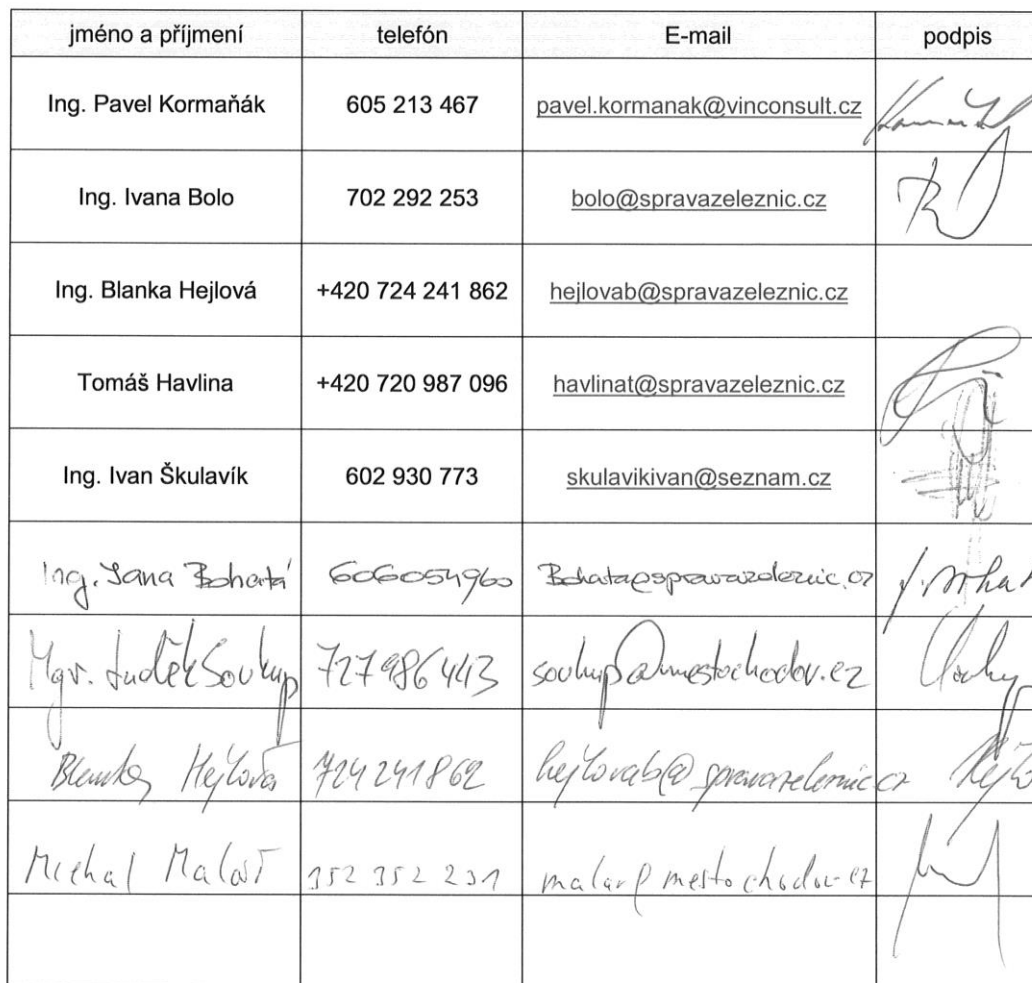 jméno a příjmení telefón E-mail podpis
Ing. Pavel Kormaňák 605 213 467 pavel.kormanak@vinconsult.cz
Ing. Ivana Bolo 702 292 253 bolo@spravazeleznic.cz
Ing. Blanka Hejlová +420 724 241 862 hejlovab@spravazeleznic.cz
Tomáš Havlina +420 720 987 096 havlinat@spravazeleznic.cz
Ing. Ivan Škulavík 602 930 773 skulavikivan@seznam.cz
Ing. Jana Bohatá 606054960 Bohata@spravazeleznic.cz
Mgr. Luděk Soukup 727986443 soukup@mestochodov.cz
Blanka Hejlová 724241862 hejlovab@spravazeleznic.cz
Michal Malář 352 352 231 malar@mestochodov.cz